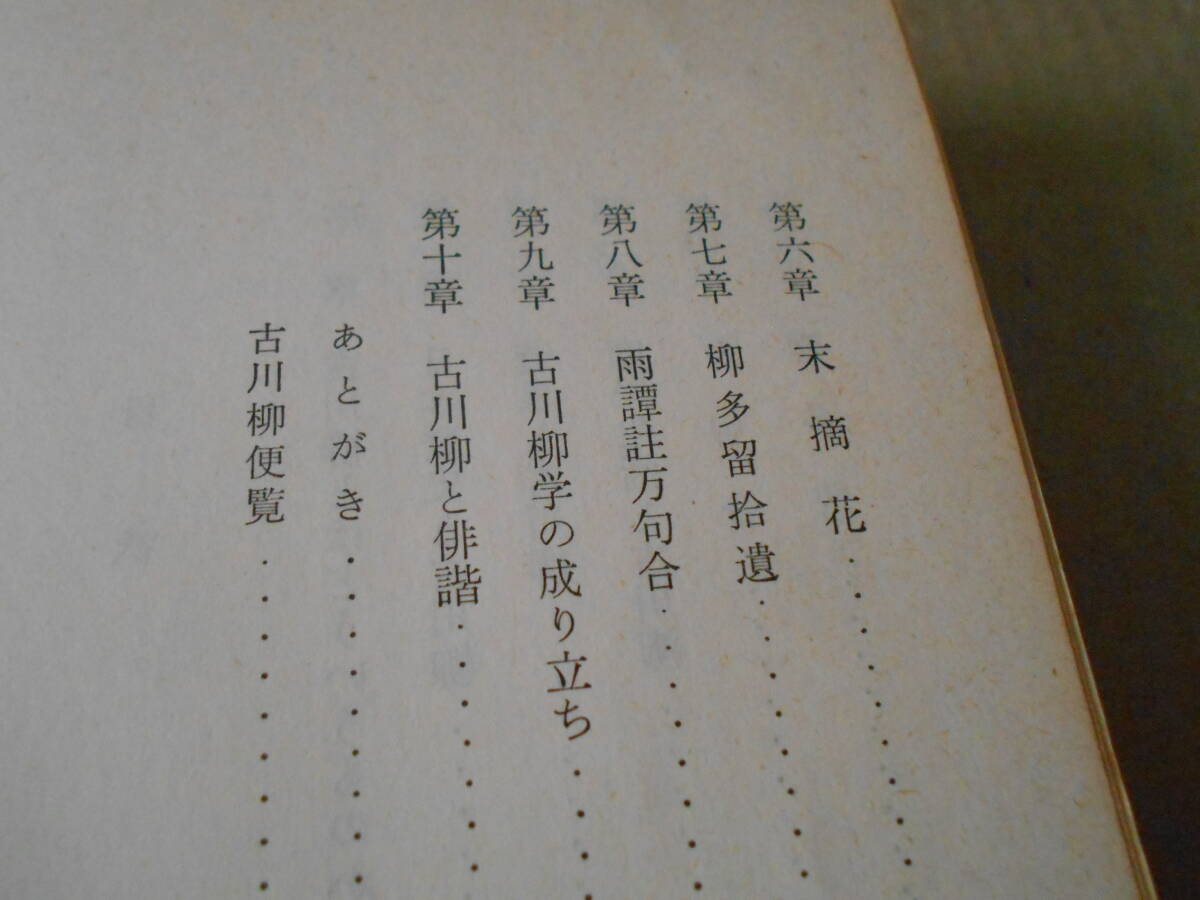 第六章 末摘花・・・・・・・・・
第七章 柳多留拾遺・・・・・・・・
第八章 雨譚註万句合・・・・・・・・
第九章 古川柳学の成り立ち・・・・
第十章 古川柳と俳諧・・・・・・・
あとがき・・・・・・・・・
古川柳便覧・・・・・・・・・